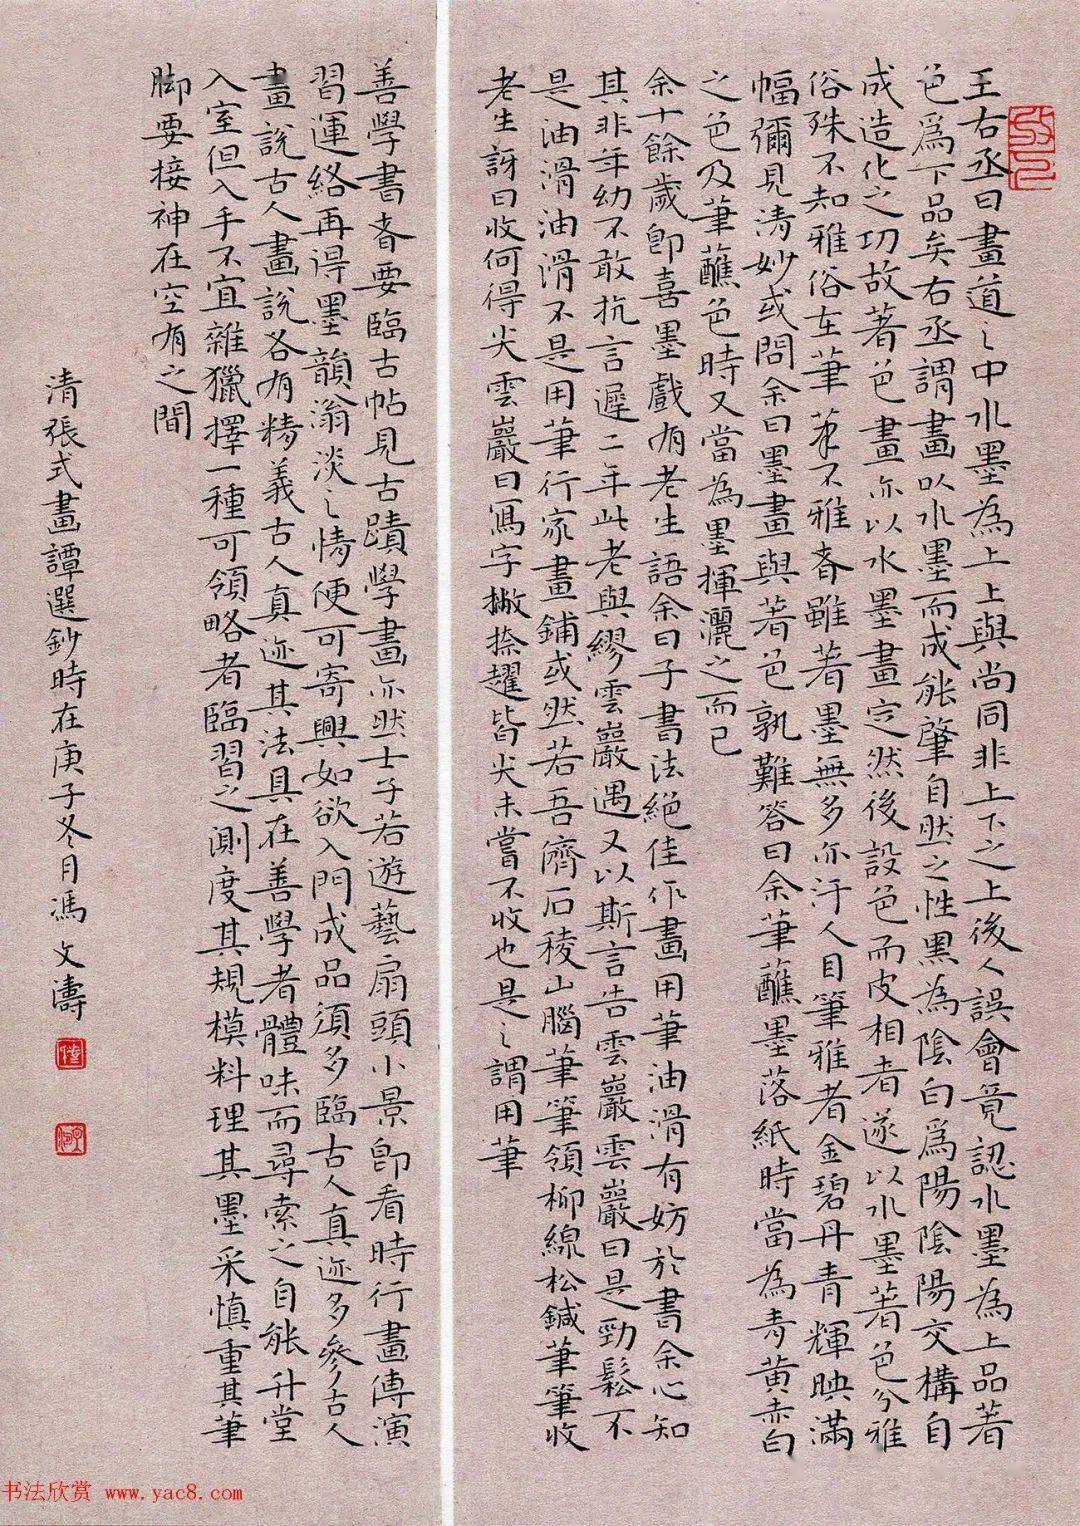 王右丞曰畫道之中水墨為上上與尚同非上下之上後人誤會竟認水墨為上品著
色爲下品矣右丞謂畫以水墨而成能肇自然之性黑為陰白爲陽陰陽交構自
成造化之功故著色畫亦以水墨畫定然後設色而皮相者遂以水墨著色分雅
俗殊不知雅俗在筆筆不雅者雖著墨無多亦汙人目筆雅者金碧丹青輝映滿
幅彌見清妙或問余曰墨畫與著色孰難答曰余筆蘸墨落紙時當為青黃赤白
之色及筆蘸色時又當為墨揮灑之而已
余十餘歲卽喜墨戲有老生語余曰子書法絕佳作畫用筆油滑有妨於書余心知
其非年幼不敢抗言遲二年此老與繆雲巖遇又以斯言告雲巖雲巖曰是勁鬆不
是油滑油滑不是用筆行家畫鋪或然若吾儕石稜山腦筆筆領柳線松鍼筆筆收
老生訝曰收何得尖雲巖曰寫字撇捺趯皆尖未嘗不收也是之謂用筆
善學書者要臨古帖見古蹟學畫亦然士子若遊藝扇頭小景卽看時行畫傳演
習運絡再得墨韻滃淡之情便可寄興如欲入門成品須多臨古人真迹多參古人
畫說古人畫說各有精義古人真迹其法具在善學者體味而尋索之自能升堂
入室但入手不宜雜獵擇一種可領略者臨習之測度其規模料理其墨采慎重其筆
脚要接神在空有之間
清張式畫譚選鈔時在庚子冬月馮文濤
书法欣赏 www.yac8.com